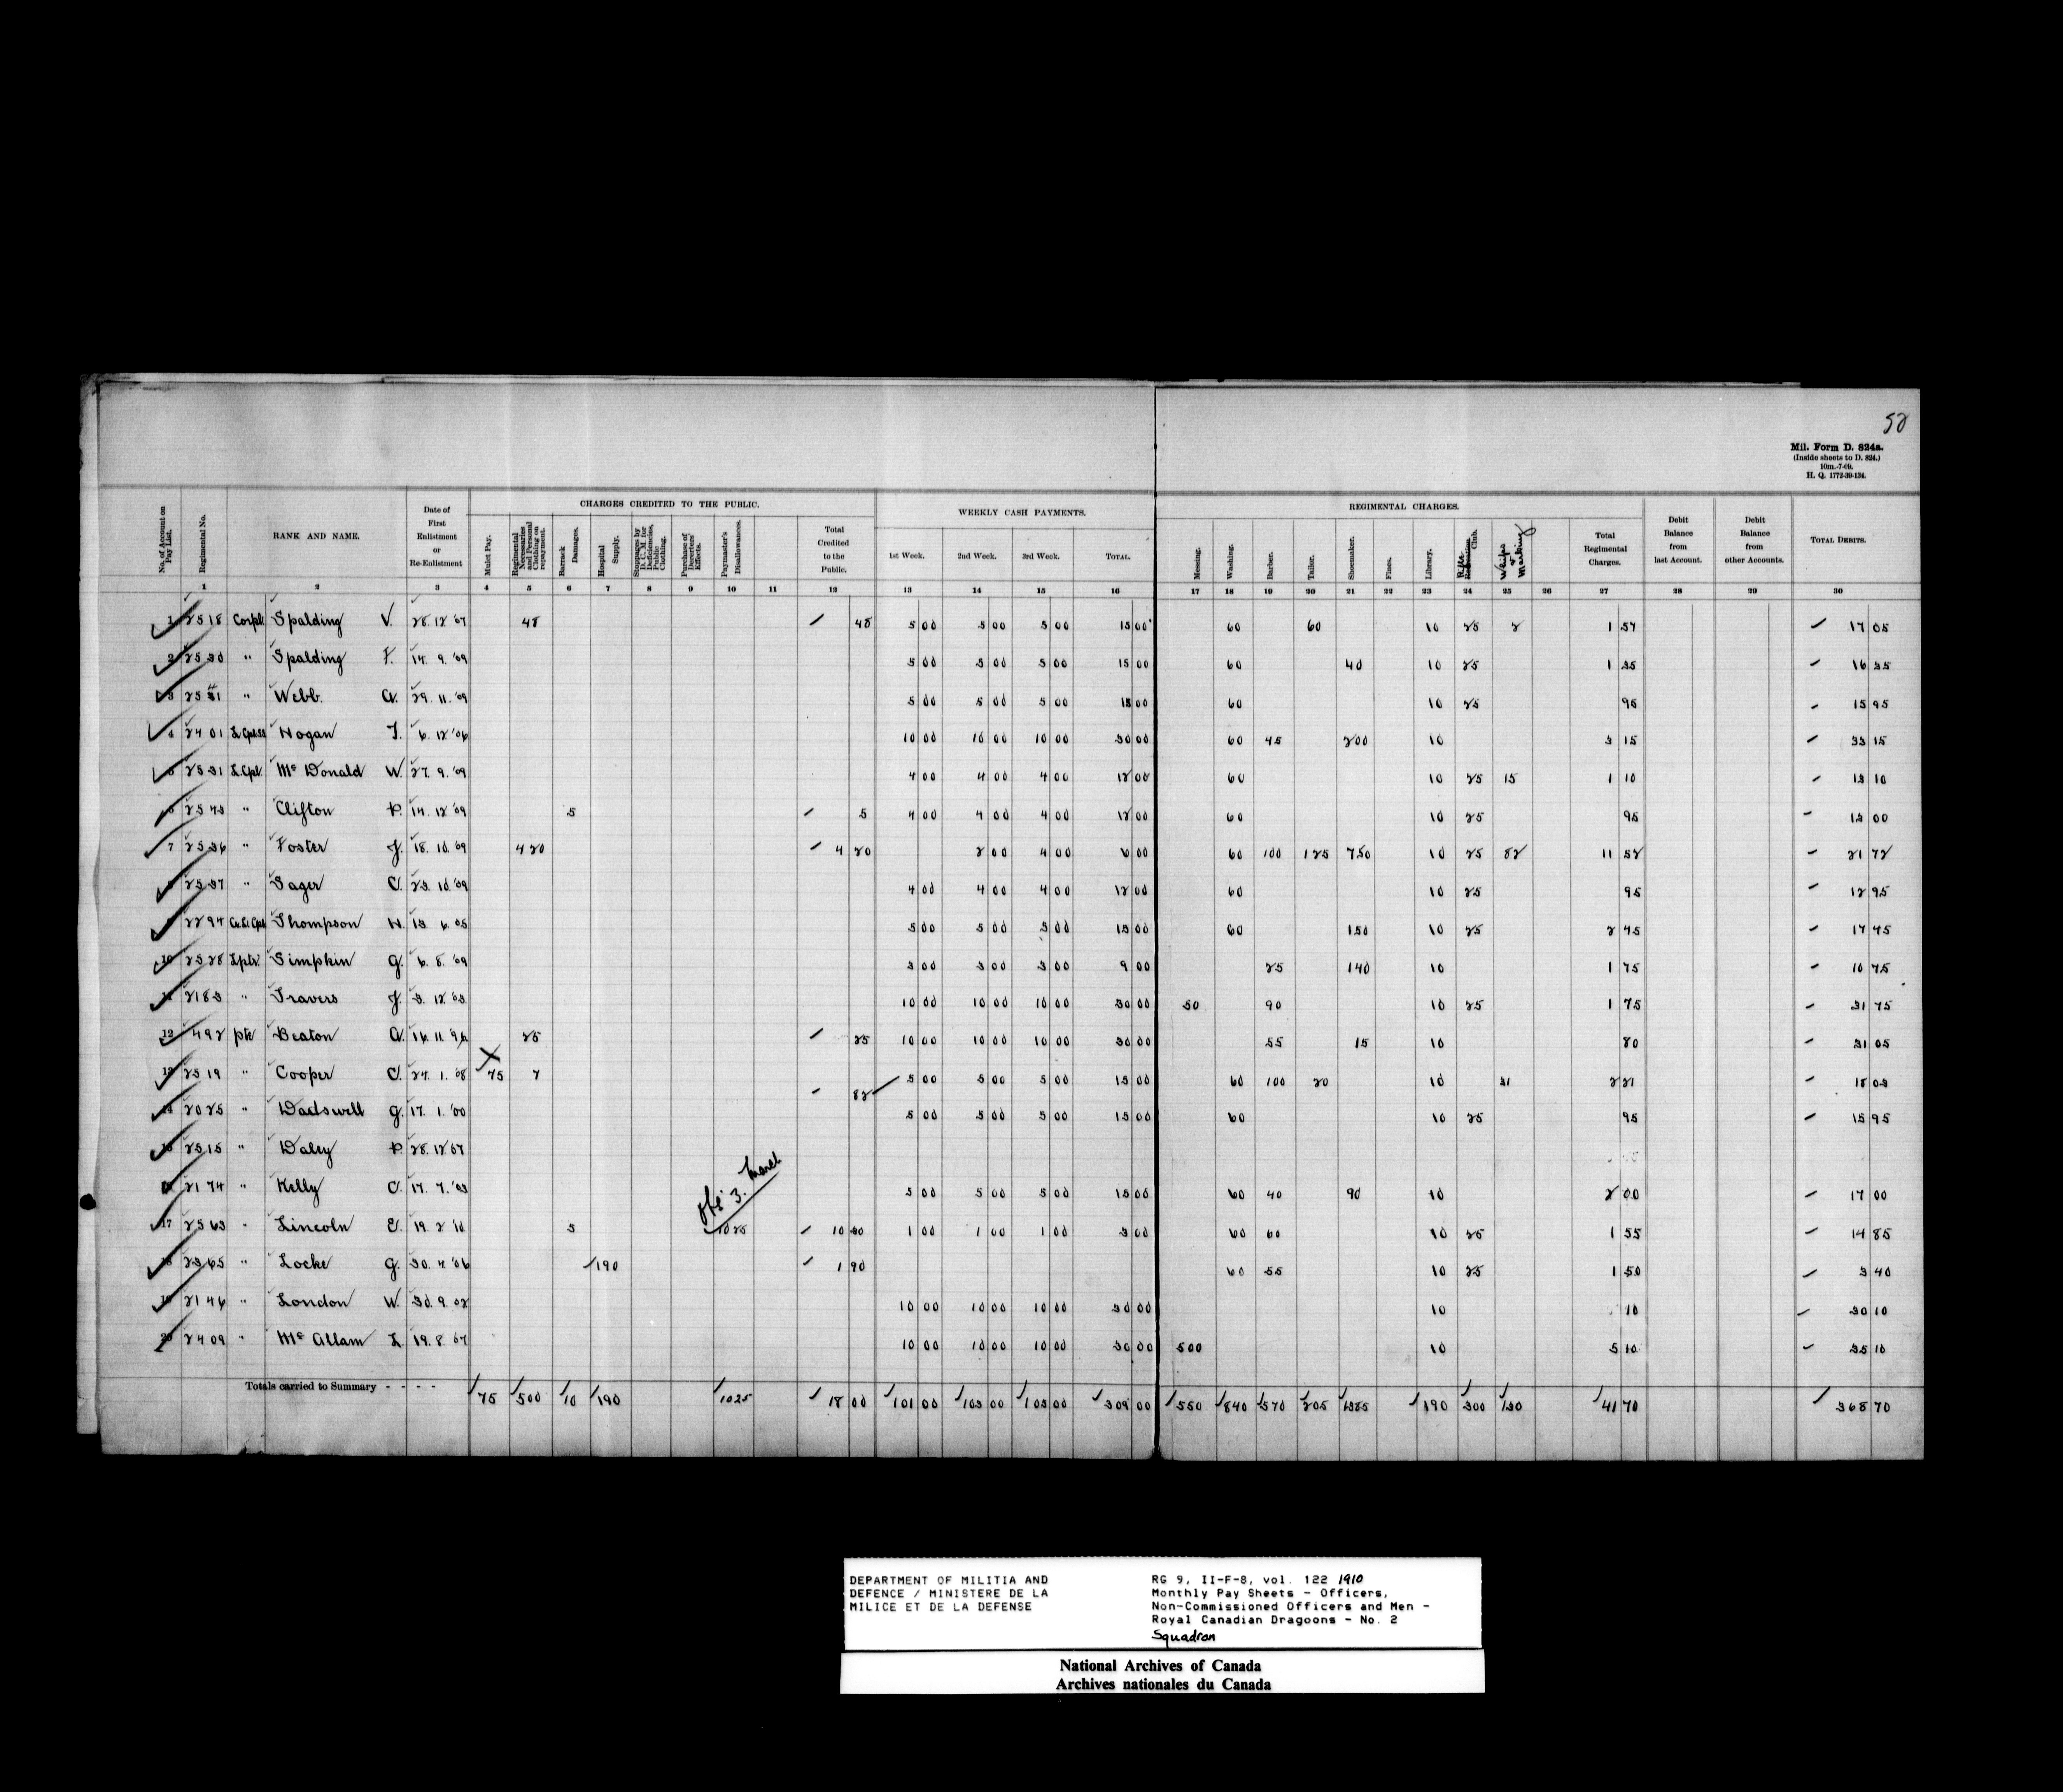 52
Mil. Form D. 824a.
(Inside sheets to D. 824.)
10m.-7-09.
H. Q. 1772-39-134.
No. of Account on Pay List. Regimental No. RANK AND NAME. Date of First Enlistment or Re-Enlistment CHARGES CREDITED TO THE PUBLIC. WEEKLY CASH PAYMENTS. REGIMENTAL CHARGES. Debit Balance from last Account. Debit Balance from other Accounts. TOTAL DEBITS.
Mulct Pay. Regimental Necessaries and Personal Clothing on repayment. Barrack Damages. Hospital Supply. Stoppages by D. C. M. for Deficiencies, Public Clothing. Purchase of Deserters' Effects. Paymaster's Disallowances. Total Credited to the Public. 1st Week. 2nd Week. 3rd Week. TOTAL. Messing. Washing. Barber. Tailor. Shoemaker. Fines. Library. Rifle Club. Weips & Marking Total Regimental Charges.
1 2 3 4 5 6 7 8 9 10 11 12 13 14 15 16 17 18 19 20 21 22 23 24 25 26 27 28 29 30
1 2518 Corpl Spalding V. 28.12.07 48 48 5 00 5 00 5 00 15 00 60 60 10 25 2 1 57 17 05
2 2530 " Spalding F. 14. 9. '09 5 00 5 00 5 00 15 00 60 40 10 25 1 35 16 35
3 Webb. A. 29. 11. '09 5 00 5 00 5 00 15 00 60 10 25 95 15 95
4 2401 Hogan T. 6. 12 '06 10 00 10 00 10 00 30 00 60 45 200 10 3 15 33 15
5 2531 L.Cpl. McDonald W. 27. 9. '09 4 00 4 00 4 00 12 00 60 10 25 15 1 10 13 10
6 2543 " Clifton P. 14. 12 '09 5 5 4 00 4 00 4 00 12 00 60 10 25 95 13 00
7 2536 " Foster J. 18. 10. '09 4 20 4 20 2 00 4 00 6 00 60 100 125 750 10 25 82 11 52 21 72
8 2537 " Sager C. 23. 10. '09 4 00 4 00 4 00 12 00 60 10 25 95 12 95
9 2294 Thompson H. 13. 6. 05 5 00 5 00 5 00 15 00 60 150 10 25 2 45 17 45
10 2528 Simpkin G. 6. 8. '09 3 00 3 00 3 00 9 00 25 140 10 1 75 10 75
11 2183 " Travers J. 3. 12. '03 10 00 10 00 10 00 30 00 50 90 10 25 1 75 31 75
12 492 pte Beaton A. 16. 11. 25 25 10 00 10 00 10 00 30 00 55 15 10 80 31 05
13 2519 " Cooper C. 24. 1. '08 75 7 82 5 00 5 00 5 00 15 00 60 100 20 10 31 2 21 18 03
14 2025 " Dadswell G. 17. 1. '00 5 00 5 00 5 00 15 00 60 10 25 95 15 95
15 2515 " Daley P. 28. 12 07
16 2174 " Kelly C. 17. 7. '03 5 00 5 00 5 00 15 00 60 40 90 10 2 00 17 00
3. March
17 2563 " Lincoln E. 19. 2 '10 5 1025 10 30 1 00 1 00 1 00 3 00 60 60 10 25 1 55 14 85
18 2365 " Locke G. 30. 4. '06 190 1 90 60 55 10 25 1 50 3 40
19 2146 " London W. 30. 9. 02 10 00 10 00 10 00 30 00 10 10 30 10
20 2409 " McAllam L. 19. 8. 07 10 00 10 00 10 00 30 00 500 10 5 10 35 10
Totals carried to Summary - - - - 75 500 10 190 1025 18 00 101 00 103 00 105 00 309 00 550 840 570 205 1385 190 300 130 41 70 368 70
DEPARTMENT OF MILITIA AND
DEFENCE / MINISTERE DE LA
MILICE ET DE LA DEFENSE
RG 9, II-F-8, vol. 122 1910
Monthly Pay Sheets - Officers,
Non-Commissioned Officers and Men -
Royal Canadian Dragoons - No. 2
Squadron
National Archives of Canada
Archives nationales du Canada